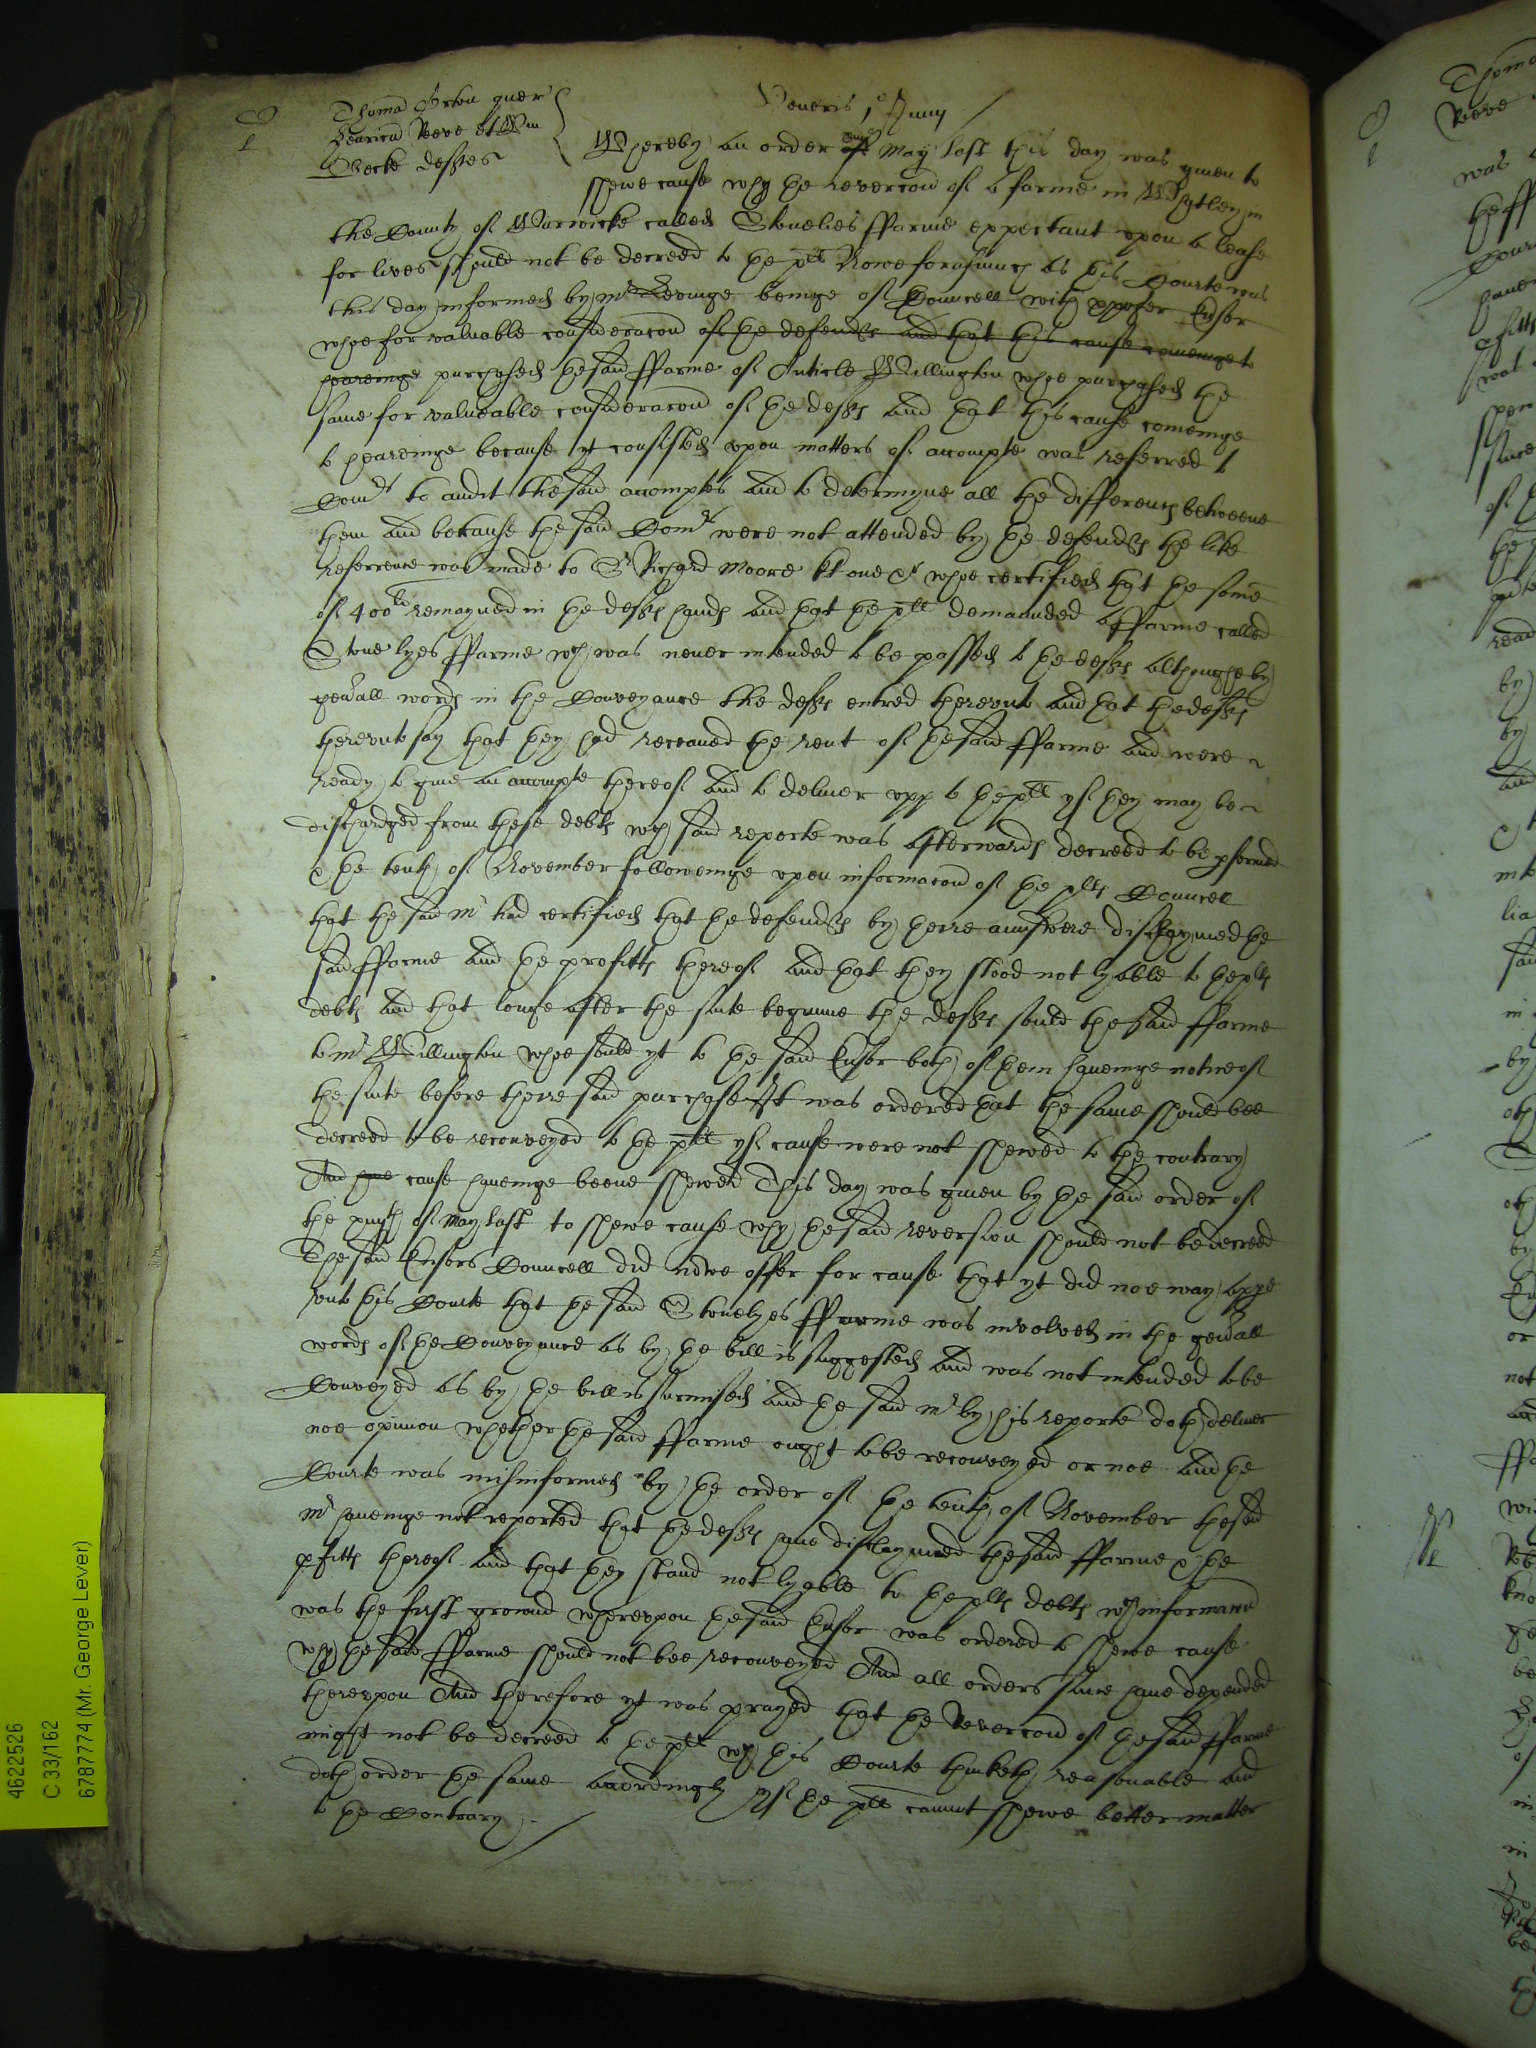 Veneris 1° Junij
Thomas Orton quer
Henricus Reve et Wm
Becke defftes
Whereby an order of May last this day was given to
shewe cause why the revercon of a farme in Whitley in
the County of Warwicke called Stonelies ffarme expectant upon a lease
for lives should not be decreed to the plt Nowe forasmuch as this Courte was
this day informed by Mr beinge of Councell with Ensor
whoe for valuable consideracon of the defendts and that this cause comeinge to
heareinge purchased the said ffarme of Willington whoe purchased the
same for valueable consideracon of the defts and that this cause comeinge
to heareinge because yt consisted upon matters of accompte was referred to
Comrs to audit the said accomptes and to determyne all the differences betweene
them and because the said Comrs were not attended by the defendts the like
referrence was made to Sr Richard Moore kt one &c whoe certified that the some
of 400li remayned in the defts hands and that the plt demaunded a ffarme called
Stonelyes ffarme wch was never intended to be passed to the defts althoughe by
gen'all words in the Conveyance the defts entred thereunto and that the defts
thereunto say that they had receaved the rent of the said ffarme and were
ready to give an accompte thereof and to deliver upp to the plt yf they may be
discharged from these debts wch said reporte was afterwards decreed to be pformed
& the tenth of November followeinge upon informacon of the plts Councell
that the said Mr had certified that the defendts by theire aunswere disclaymed the
said ffarme and the profitts thereof and that they stood not lyable to the plts
debts and that longe after the suite begunne the defts sould the said ffarme
to Mr Willington whoe sould yt to the said Ensor both of them haveinge notice of
the suite before theire said purchase It was ordered that the same should bee
decreed to be reconveyed to the plt yf cause were not shewed to the contrary
And have cause haveinge beene shewed This day was given by the said order of
the of May last to shewe cause why the said reversion should not be decreed
The said Ensors Councell did nowe offer for cause that yt did noe way appe
unto this Courte that the said Stonelyes ffarme was involved in the gen'all
words of the Conveyance as by the bill is suggested and was not intended to be
Conveyed as by the bill is surmised and the said Mr by his reporte doth deliver
noe opinion whether the said ffarme ought to be reconveyed or noe And the
Courte was misinformed by the order of the tenth of November the said
Mr haveinge not reported that the defts have disclaymed the said ffarme & the
pfitts thereof and that they stand not lyable to the plts debts wch informacon
was the first ground whereupon the said Ensor was ordered to shewe cause
why the said ffarme should not bee reconveyed And all orders since have depended
thereupon And therefore yt was prayed that the Revercon of the said ffarme
might not be decreed to the plt wch this Courte thinketh reasonable and
doth order the same accordingly Yf the plt cannot shewe better matter
to the Contrary
4622526
C 33/162
6787774 (Mr. George Lever)